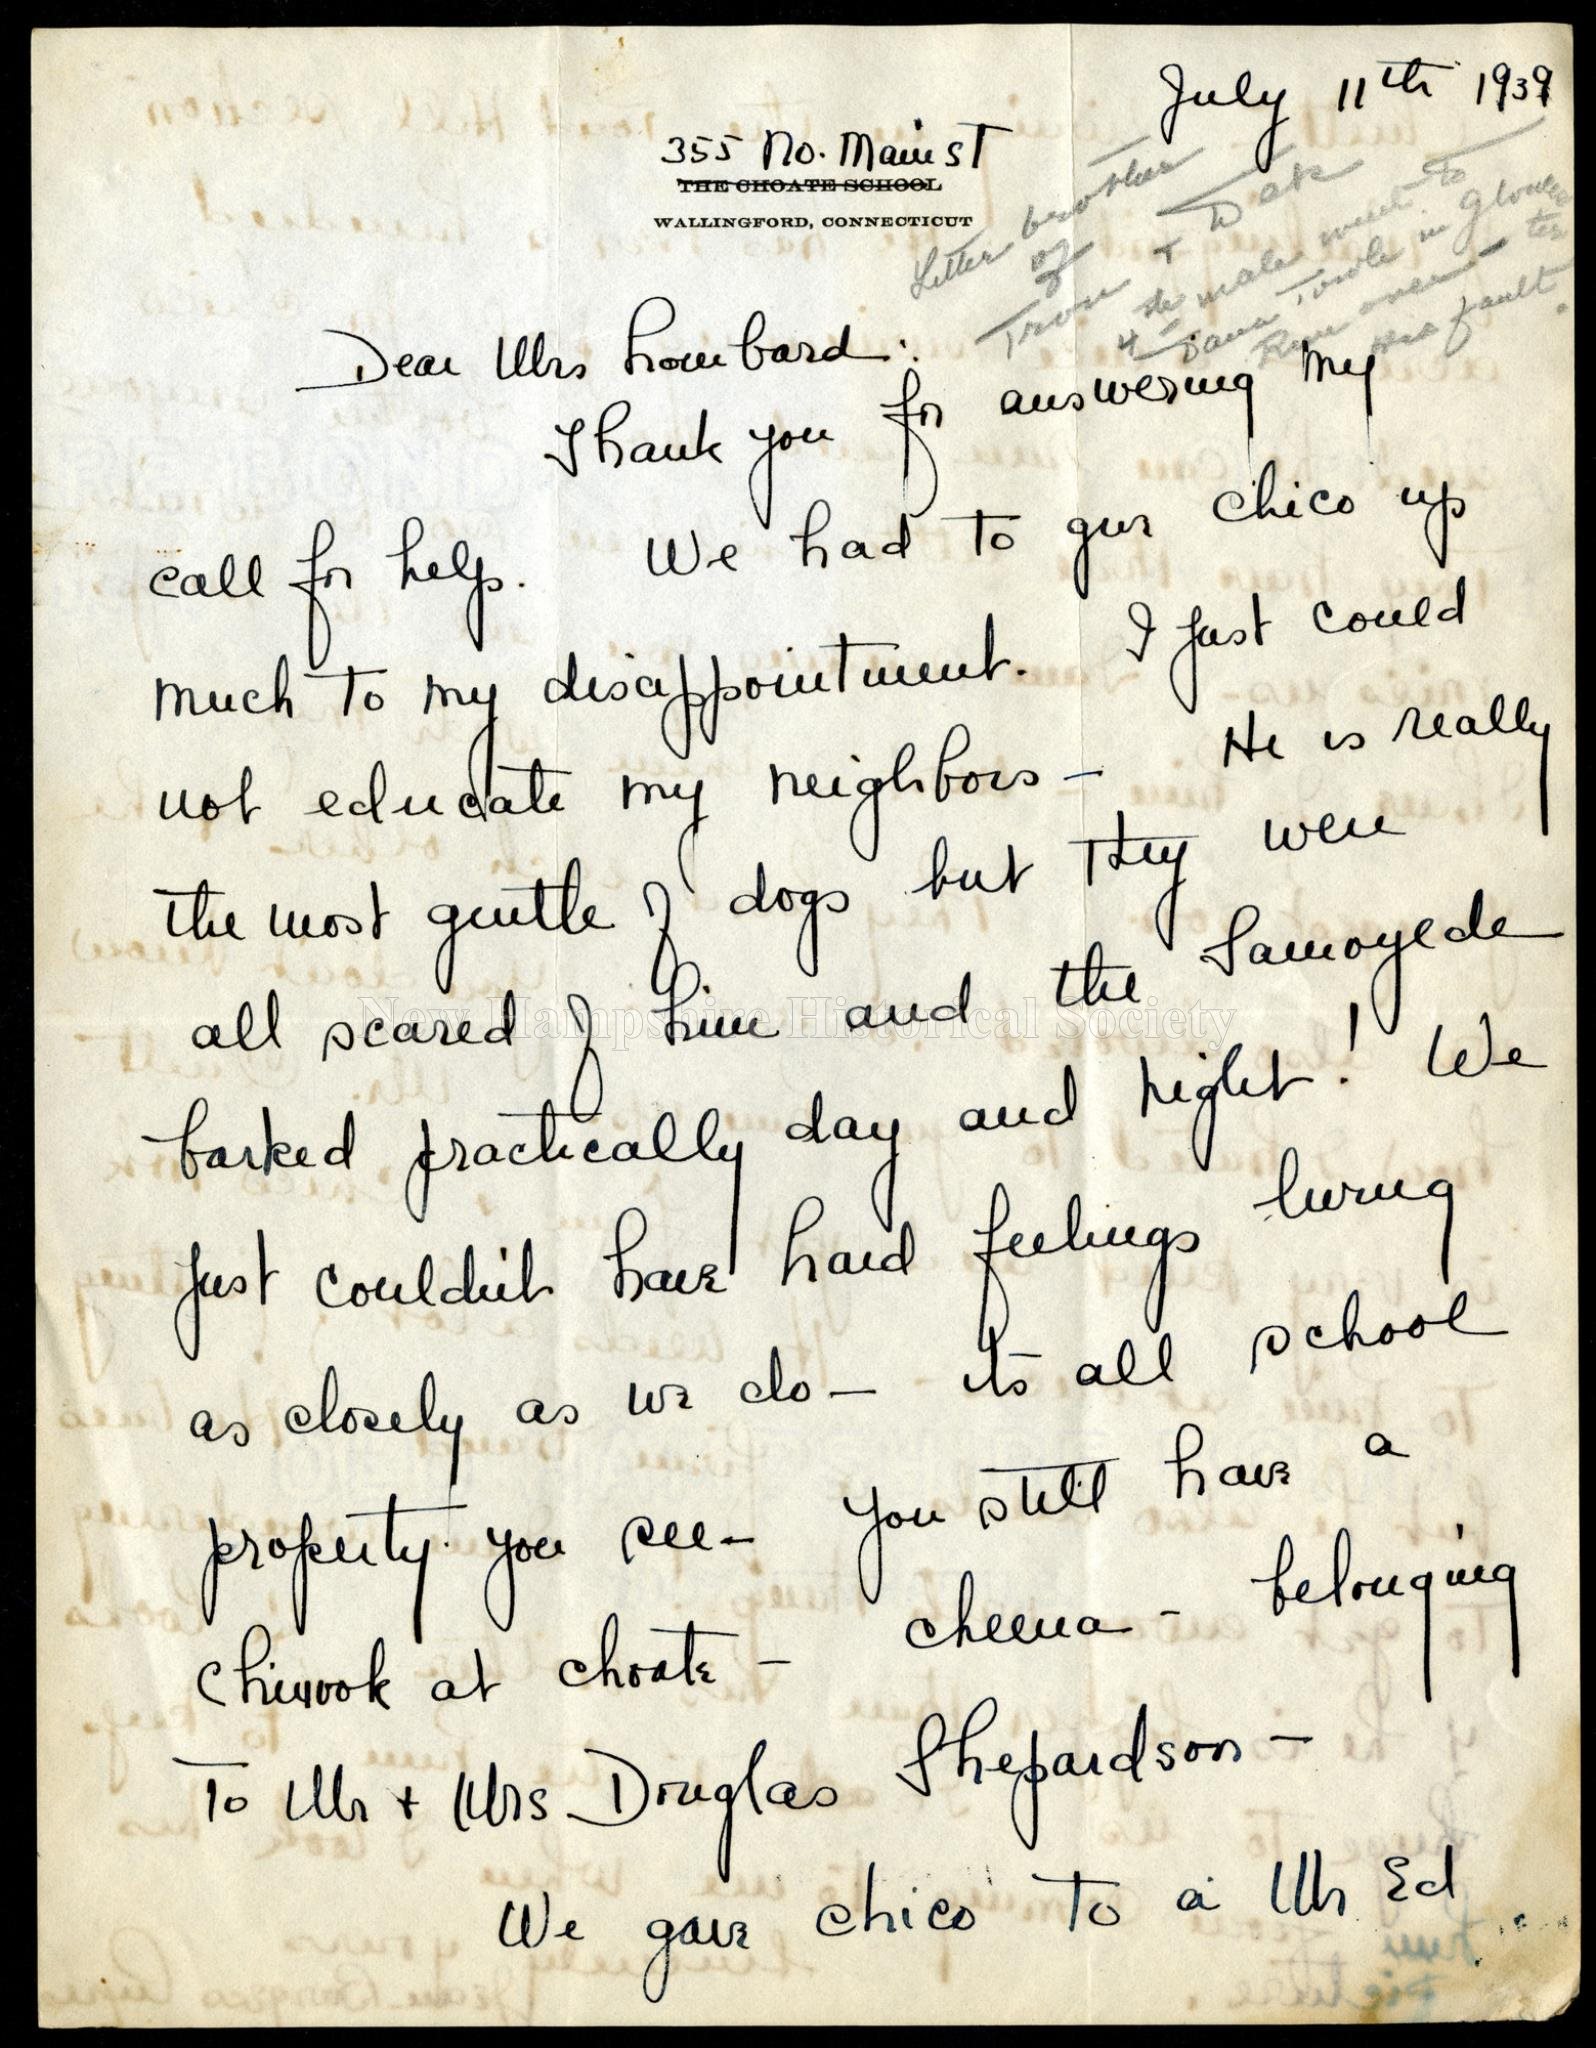 July 11th 1939
355 No. Main St
THE CHOATE SCHOOL
WALLINGFORD, CONNECTICUT
Litter brother
of
Tron + Dek
4 - the male went to
Dana Towle in Gloucester
Run over - his fault.
Dear Mrs Lombard:
Thank you for answering my
call for help. We had to give Chico up
much to my disappointment. I just could
not educate my neighbors - He is really
the most gentle of dogs but they were
all scared of him and the Samoyede
barked practically day and night! We
just couldn't have hard feelings living
as closely as we do - its all school
property you see - You still have a
Chinook at Choate - Cheena - belonging
To Mr + Mrs Douglas Shepardson -
We gave Chico to a Mr Ed
New Hampshire Historical Society